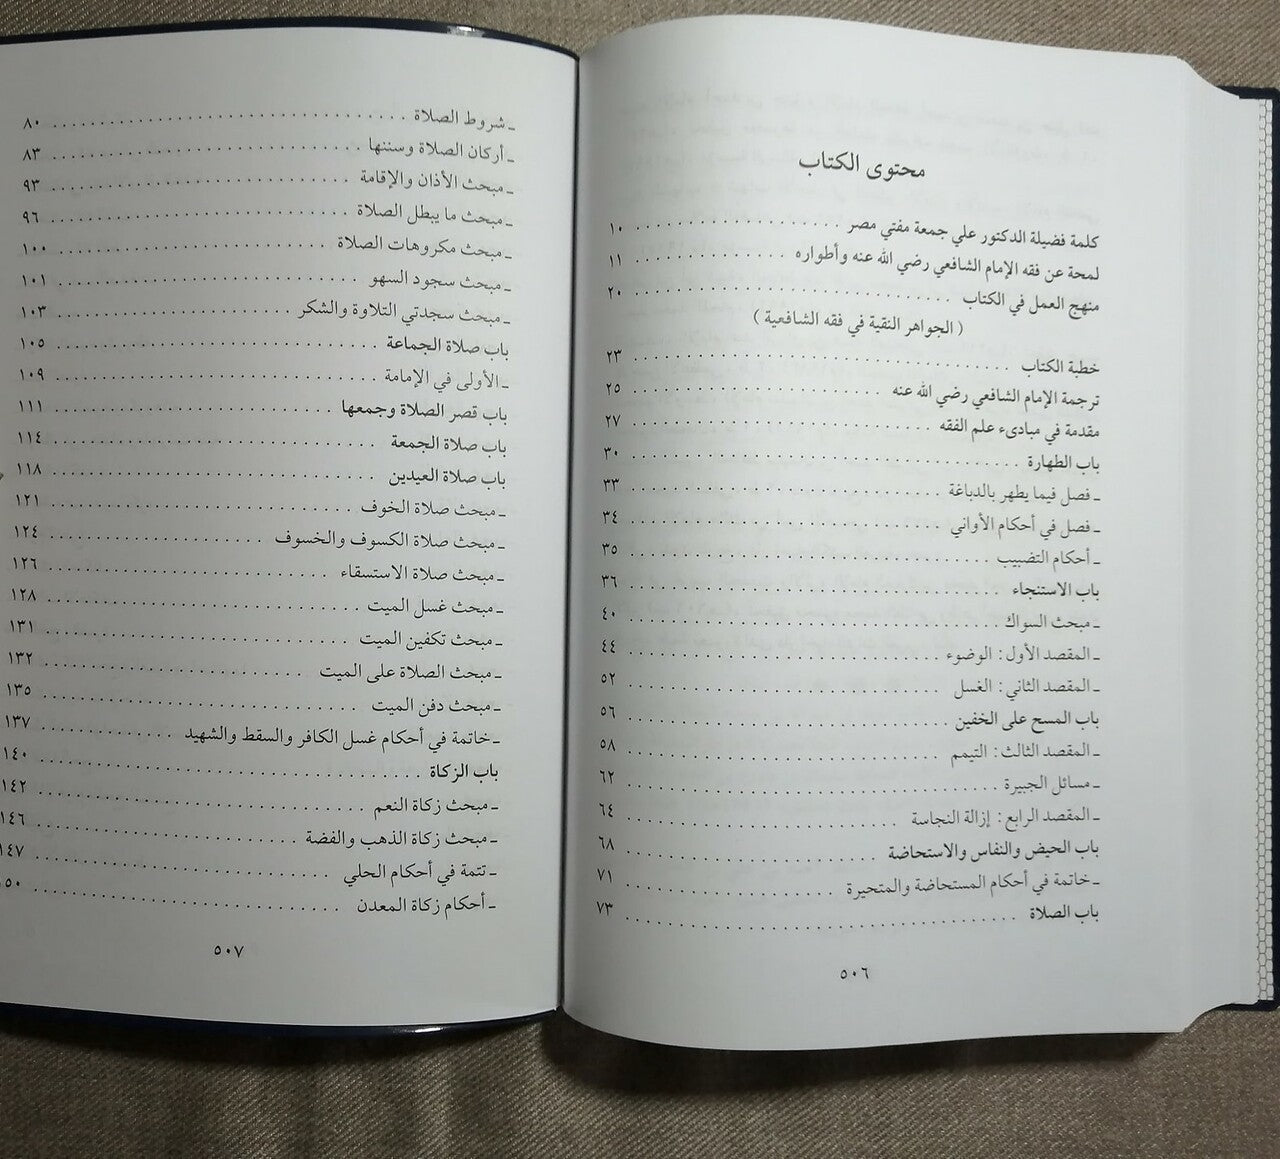 محتوى الكتاب
كلمة فضيلة الدكتور علي جمعة مفتي مصر . . . . . . . . . . . . . . . ١٠
لمحة عن فقه الإمام الشافعي رضي الله عنه وأطواره . . . . . . . . . . . . . ١١
منهج العمل في الكتاب . . . . . . . . . . . . . . . . . . . . . . . . ٢٠
( الجواهر النقية في فقه الشافعية )
خطبة الكتاب . . . . . . . . . . . . . . . . . . . . . . . . . . . . ٢٣
ترجمة الإمام الشافعي رضي الله عنه . . . . . . . . . . . . . . . . . . ٢٥
مقدمة في مبادىء علم الفقه . . . . . . . . . . . . . . . . . . . . . . ٢٧
باب الطهارة . . . . . . . . . . . . . . . . . . . . . . . . . . . . ٣٠
ـ فصل فيما يطهر بالدباغة . . . . . . . . . . . . . . . . . . . . . . ٣٣
ـ فصل في أحكام الأواني . . . . . . . . . . . . . . . . . . . . . . . ٣٤
ـ أحكام التضبيب . . . . . . . . . . . . . . . . . . . . . . . . . . ٣٥
باب الاستنجاء . . . . . . . . . . . . . . . . . . . . . . . . . . . ٣٦
ـ مبحث السواك . . . . . . . . . . . . . . . . . . . . . . . . . . . ٤٠
ـ المقصد الأول : الوضوء . . . . . . . . . . . . . . . . . . . . . . ٤٤
ـ المقصد الثاني : الغسل . . . . . . . . . . . . . . . . . . . . . . ٥٢
باب المسح على الخفين . . . . . . . . . . . . . . . . . . . . . . . ٥٦
ـ المقصد الثالث : التيمم . . . . . . . . . . . . . . . . . . . . . . ٥٨
ـ مسائل الجبيرة . . . . . . . . . . . . . . . . . . . . . . . . . . ٦٢
ـ المقصد الرابع : إزالة النجاسة . . . . . . . . . . . . . . . . . . . ٦٤
باب الحيض والنفاس والاستحاضة . . . . . . . . . . . . . . . . . . . ٦٨
ـ خاتمة في أحكام المستحاضة والمتحيرة . . . . . . . . . . . . . . . . ٧١
باب الصلاة . . . . . . . . . . . . . . . . . . . . . . . . . . . . ٧٣
٥٠٦
ـ شروط الصلاة . . . . . . . . . . . . . . . . . . . . . . . . . . . ٨٠
ـ أركان الصلاة وسننها . . . . . . . . . . . . . . . . . . . . . . . ٨٣
ـ مبحث الأذان والإقامة . . . . . . . . . . . . . . . . . . . . . . . ٩٣
ـ مبحث ما يبطل الصلاة . . . . . . . . . . . . . . . . . . . . . . . ٩٦
ـ مبحث مكروهات الصلاة . . . . . . . . . . . . . . . . . . . . . . ١٠٠
ـ مبحث سجود السهو . . . . . . . . . . . . . . . . . . . . . . . . ١٠١
ـ مبحث سجدتي التلاوة والشكر . . . . . . . . . . . . . . . . . . . ١٠٣
باب صلاة الجماعة . . . . . . . . . . . . . . . . . . . . . . . . . ١٠٥
ـ الأولى في الإمامة . . . . . . . . . . . . . . . . . . . . . . . . . ١٠٩
باب قصر الصلاة وجمعها . . . . . . . . . . . . . . . . . . . . . . ١١١
باب صلاة الجمعة . . . . . . . . . . . . . . . . . . . . . . . . . ١١٤
باب صلاة العيدين . . . . . . . . . . . . . . . . . . . . . . . . . ١١٨
ـ مبحث صلاة الخوف . . . . . . . . . . . . . . . . . . . . . . . . ١٢١
ـ مبحث صلاة الكسوف والخسوف . . . . . . . . . . . . . . . . . . ١٢٤
ـ مبحث صلاة الاستسقاء . . . . . . . . . . . . . . . . . . . . . . ١٢٦
ـ مبحث غسل الميت . . . . . . . . . . . . . . . . . . . . . . . . . ١٢٨
ـ مبحث تكفين الميت . . . . . . . . . . . . . . . . . . . . . . . . ١٣١
ـ مبحث الصلاة على الميت . . . . . . . . . . . . . . . . . . . . . . ١٣٢
ـ مبحث دفن الميت . . . . . . . . . . . . . . . . . . . . . . . . . ١٣٥
ـ خاتمة في أحكام غسل الكافر والسقط والشهيد . . . . . . . . . . . . ١٣٧
باب الزكاة . . . . . . . . . . . . . . . . . . . . . . . . . . . . ١٤٠
ـ مبحث زكاة النعم . . . . . . . . . . . . . . . . . . . . . . . . . ١٤٢
ـ مبحث زكاة الذهب والفضة . . . . . . . . . . . . . . . . . . . . . ١٤٦
ـ تتمة في أحكام الحلي . . . . . . . . . . . . . . . . . . . . . . . ١٤٧
ـ أحكام زكاة المعدن . . . . . . . . . . . . . . . . . . . . . . . . ٥٠
٥٠٧